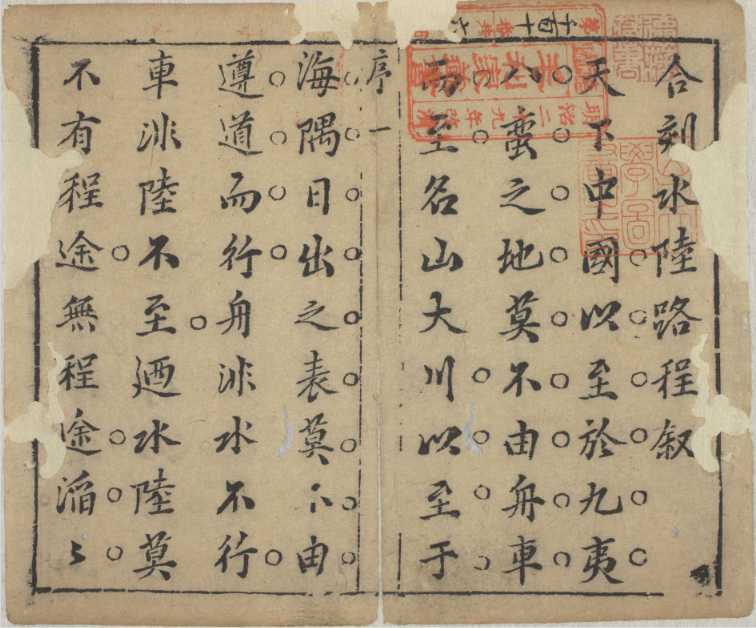 合刻水陸路程叙
天下中國以至於九夷
八蠻之地莫不由舟車
而至名山大川以至于
序一
海隅日出之表莫不由
遵道而行舟非水不行
車非陸不至廼水陸莫
不有程途無程途滔々